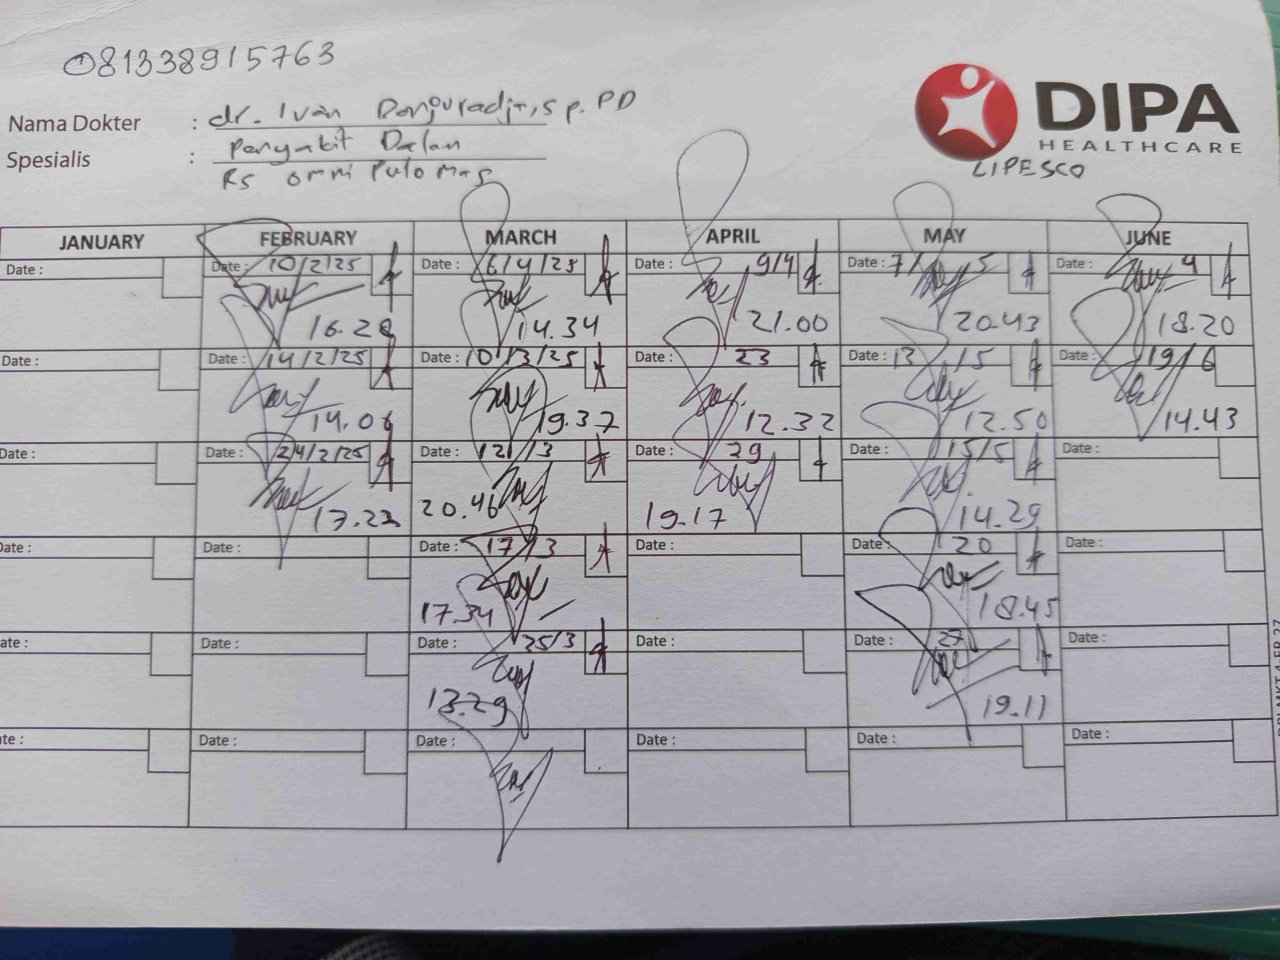 081338915763
Nama Dokter : dr. Ivan Danjuradja, sp. PD
Spesialis : Penyakit Dalam
Rs omni Pulo Mas
DIPA
HEALTHCARE
LIPESCO
JANUARY FEBRUARY MARCH APRIL MAY JUNE
Date : Date : 10/2/25 Date : 6/4/25 Date : 9/4 Date : 7/5 Date : 4
16.28 14.34 21.00 20.43 18.20
Date : Date : 14/2/25 Date : 10/3/25 Date : 23 Date : 13/5 Date : 19/6
14.06 19.37 12.32 12.50 14.43
Date : Date : 24/2/25 Date : 12/3 Date : 29 Date : 15/5 Date :
17.23 20.46 19.17 14.29
Date : Date : Date : 17/3 Date : Date : 20 Date :
17.34 18.45
ate : Date : Date : 25/3 Date : Date : 27 Date :
13.29 19.11
te : Date : Date : Date : Date : Date :